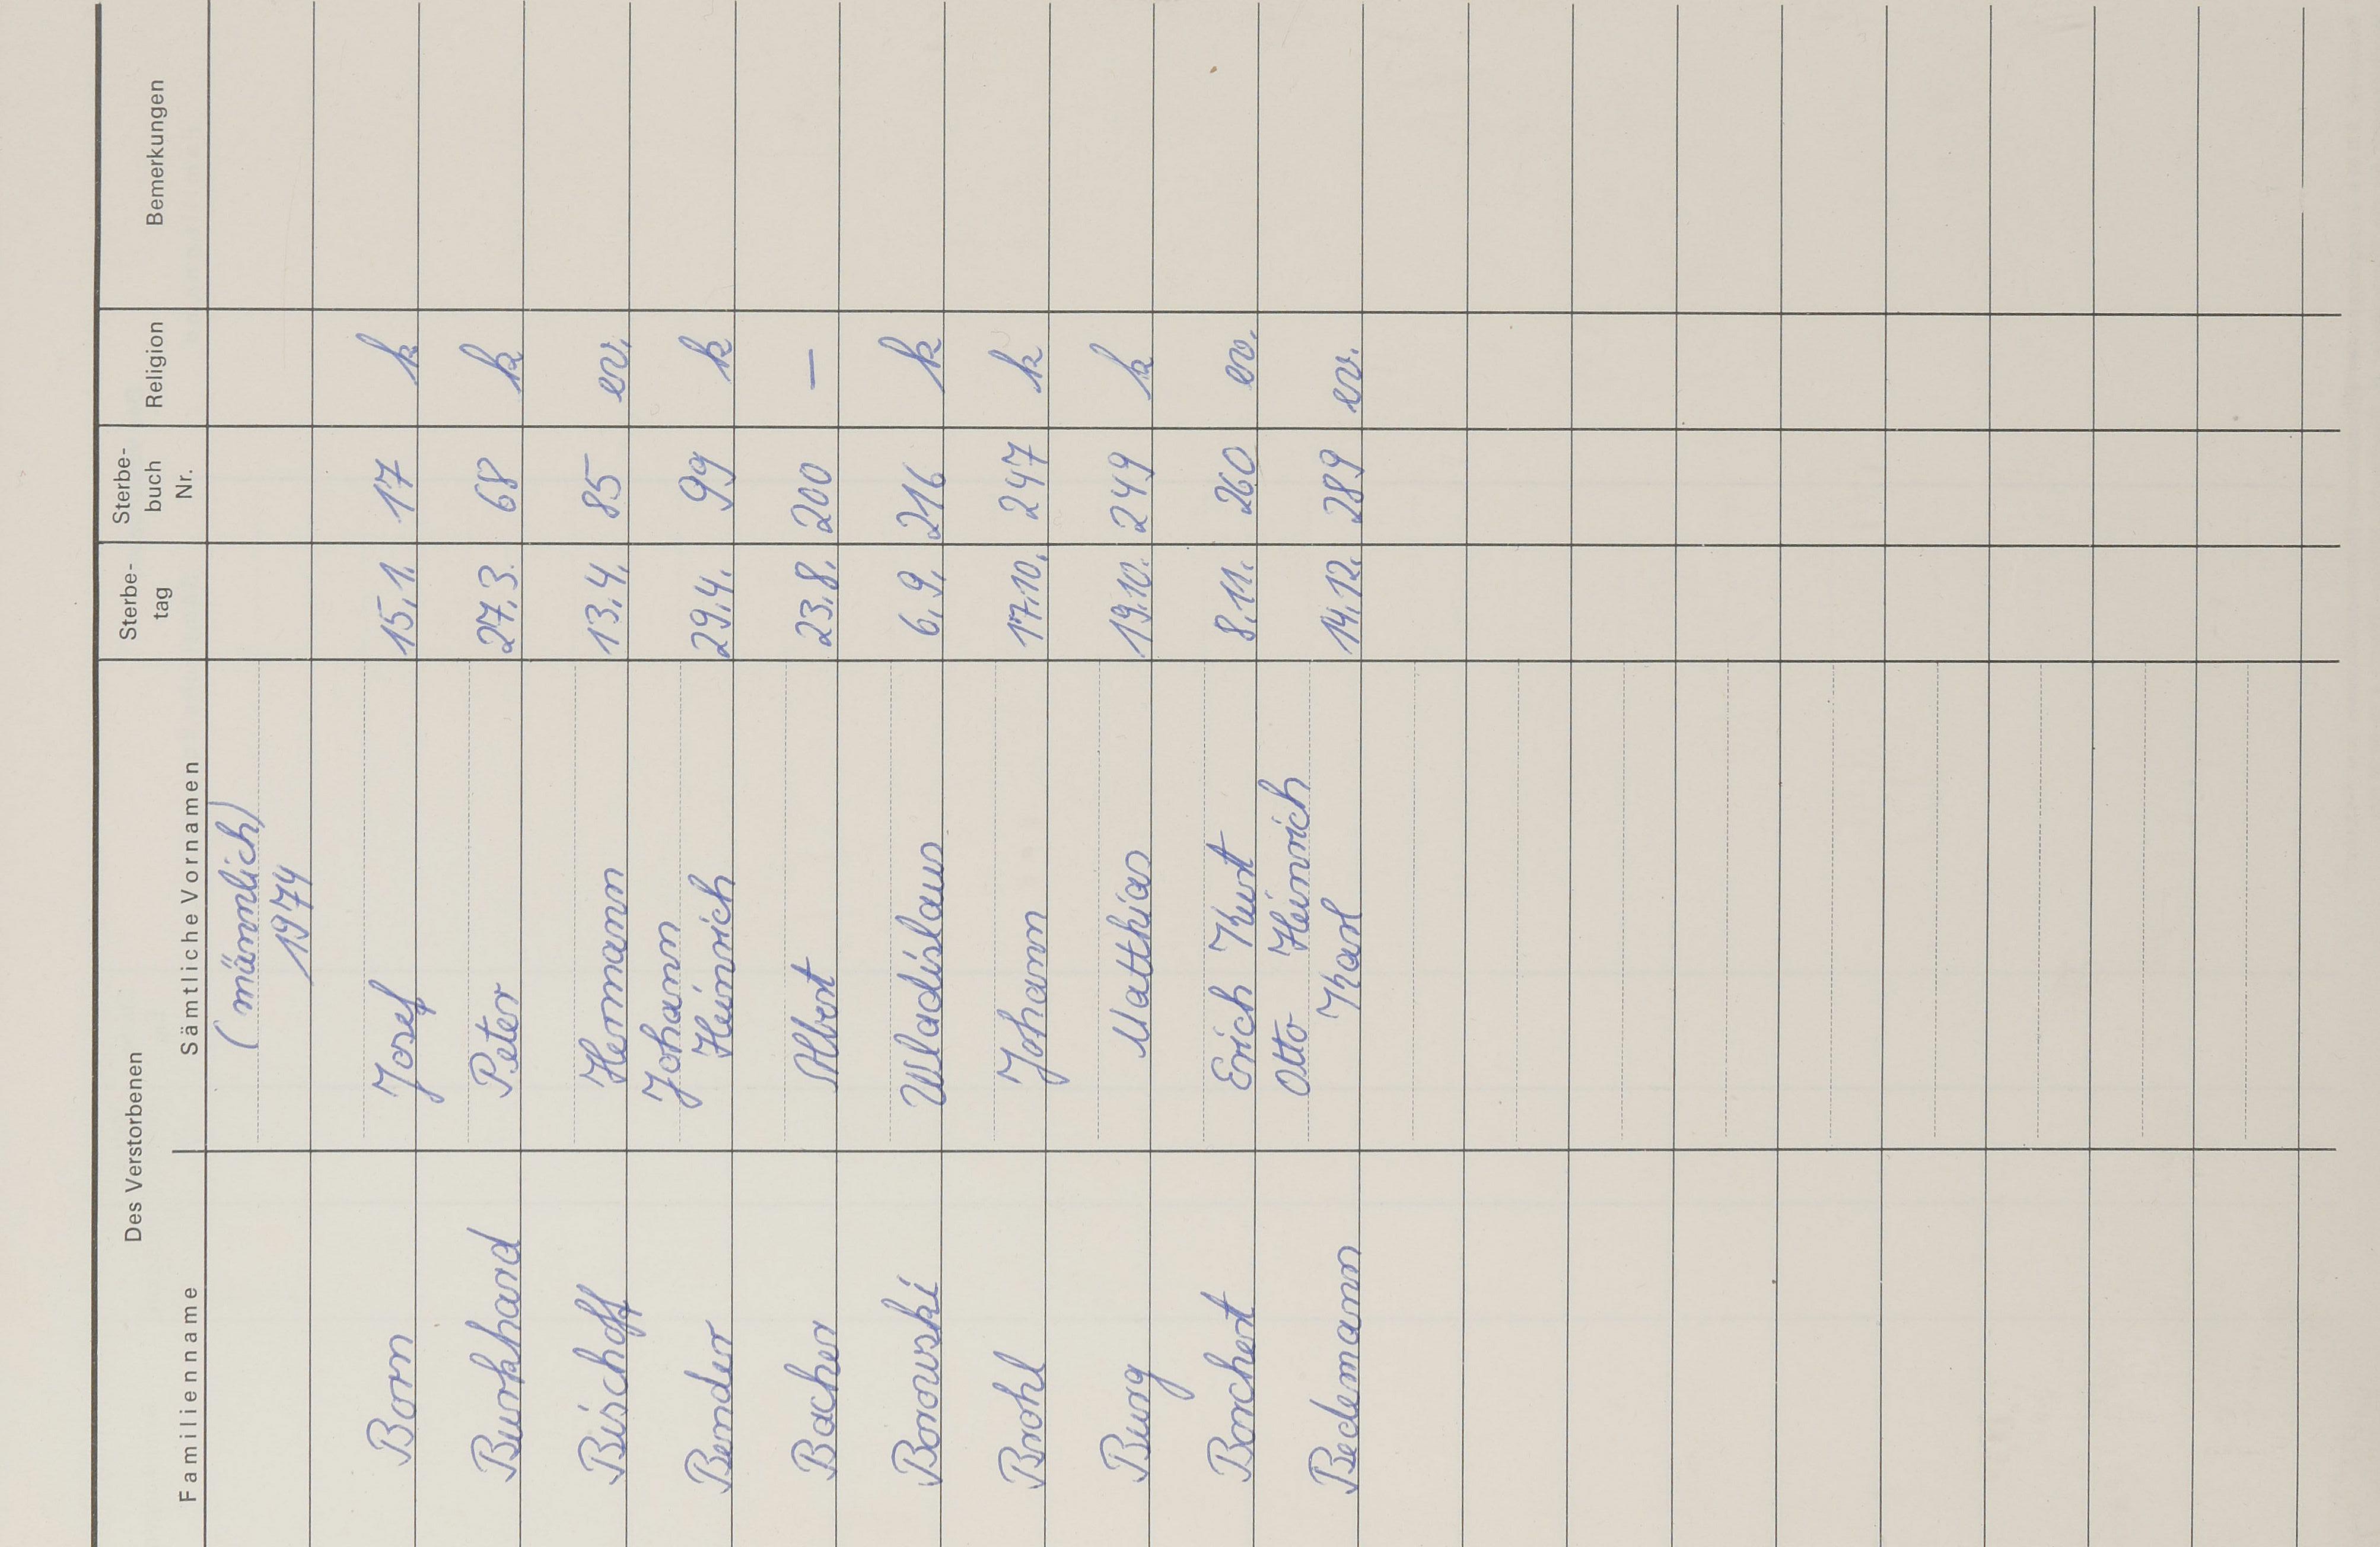 Des Verstorbenen
Familienname Sämtliche Vornamen Sterbe-tag Sterbe-buch Nr. Religion Bemerkungen
(männlich)
1974
Born Josef 15.1. 17 k
Burkhard Peter 27.3. 68 k
Bischoff Hermann 13.4. 85 ev.
Johann
Bender Heinrich 29.4. 99 k
Bacher Albert 23.8. 200 —
Borowski Wladislaus 6.9. 216 k
Brohl Johann 17.10. 247 k
Burg Matthias 19.10. 249 k
Borchert Erich Kurt 8.11. 260 ev.
Otto Heinrich
Bedemann Karl 14.12. 289 ev.